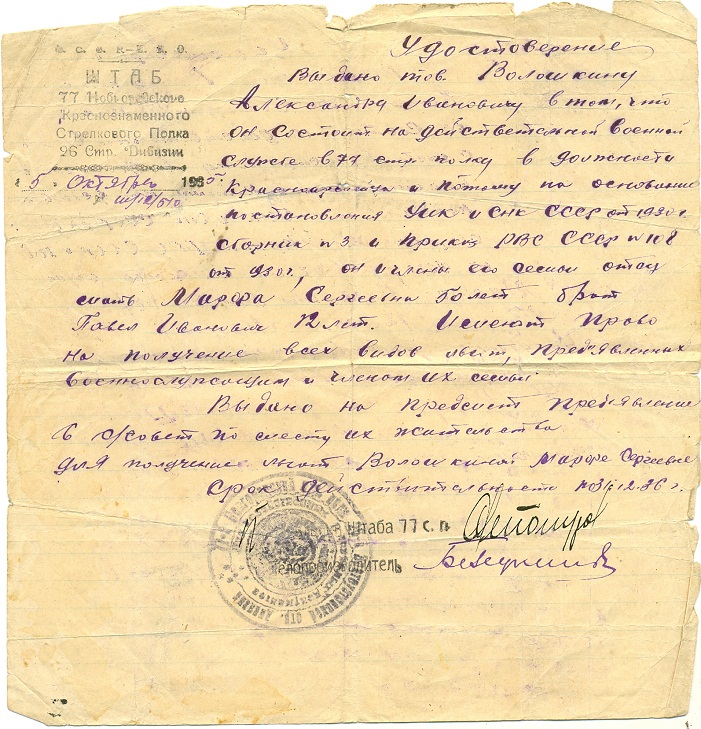 Удостоверение
Ш Т А Б
77 Новгородского
Краснознаменного
Стрелкового Полка
26 Стр. Дивизии
5 Октября 193
Выдано тов Волошкину
Александра Ивановичу в том, что
он состоит на действетельной военой
службе в 77 стр. полку в должности
Красноармейца и потому на основании
постановления ЦИК и СНК СССР от 1930 г
сборник № 3 и Приказ РВС СССР № 108
от 1930 г., он и члены его семьи отец
мать Марфа Сергеевна лет брат
Павел Иванович 12 лет. Имеют Право
на получение всех видов льгот,
военнослужащим и членам их семьи
Выдано на предмет Предъявление
в с/совет по месту их жительства
для получение льгот Волошкиной Марфе Сергеевне
Срок действительности 31.12.36 г.
штаба 77 с. п.
Делопроизводитель